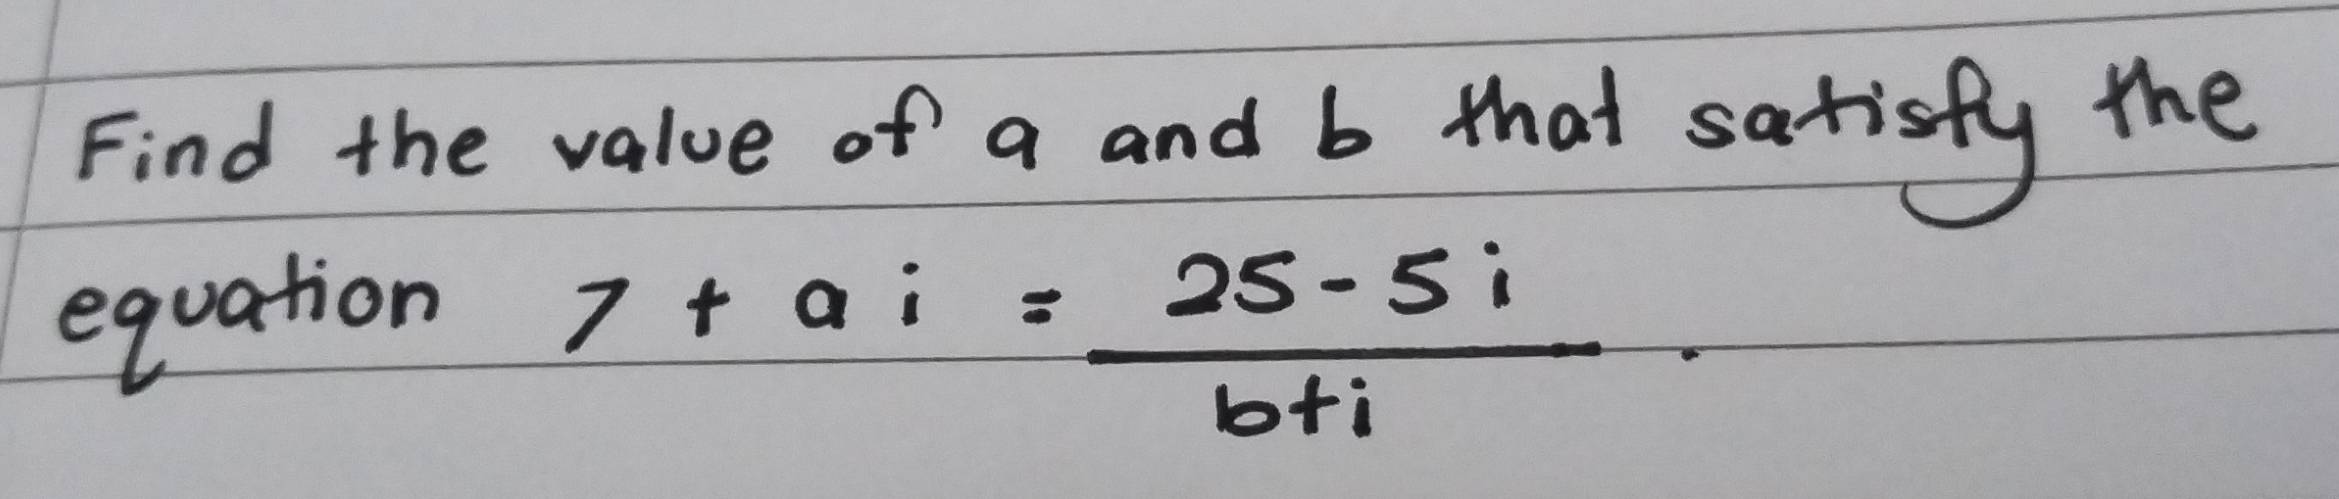 Find the value of a and b that satisfy the
equation 7 + a i = \frac{25 - 5 i}{b + i} .